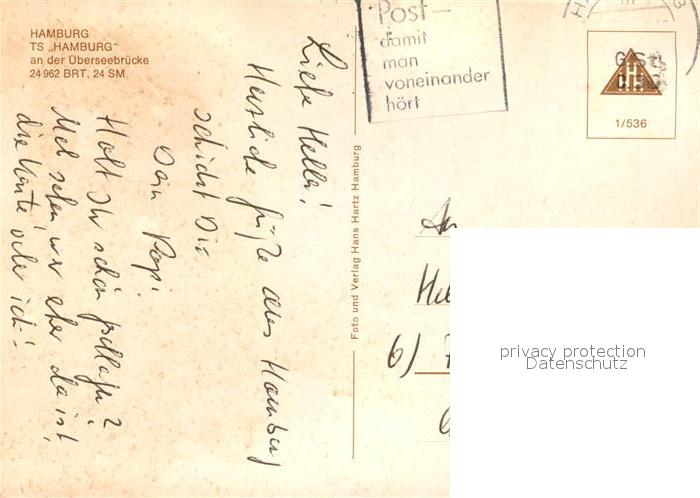 HAMBURG
TS „HAMBURG“
an der Überseebrücke
24 962 BRT, 24 SM
Liebe Hella!
Herzliche Grüße aus Hamburg
schickt Dir
Dein Papi
Habt Ihr schön geschlafen?
Mal sehen wer eher da ist,
die Karte oder ich!
Foto und Verlag Hans Hartz Hamburg
Post-
damit
man
voneinander
hört
HH
1/536
An
6)
privacy protection
Datenschutz